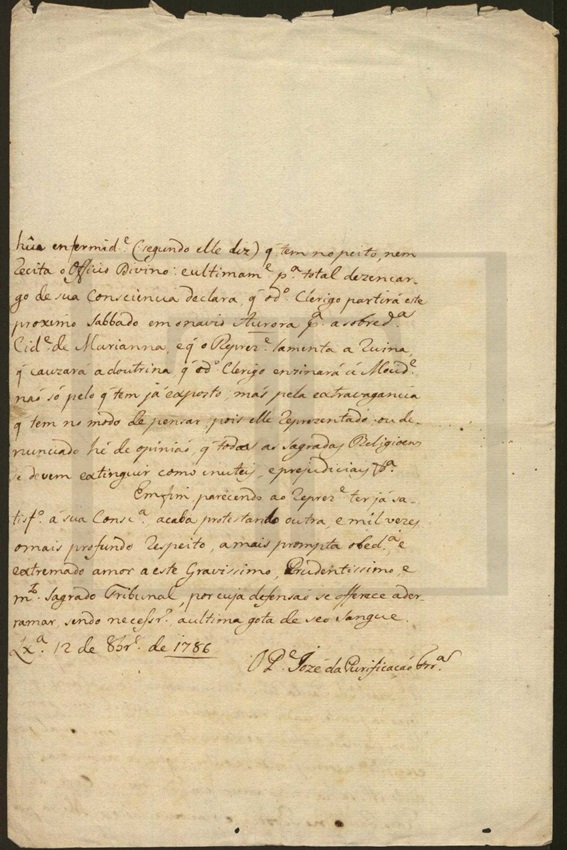 hũa enfermid.e (segundo elle diz) q̃ tem no peito, nem
recita o Officio Divino: e ultimam.e p.a total dezencar-
go de sua Consciencia declara, q̃ o d.o Clerigo partirá este
proximo Sabbado em o navio Aurora p.a a sobred.a
Cid.e de Marianna, e q̃ o Reprez.e lamenta a ruina,
q̃ cauzara a doutrina q̃ o d.o Clerigo ensinará á Mocid.e
não só pelo q̃ tem já exposto, más pela extravagancia
q̃ tem no modo de pensar, pois elle reprezentado ou de-
nunciado hé de opinião, q̃ todas as sagradas Religioens
se devem extinguir como inuteis, e prejudiciaes
Emfim, parecendo ao Reprez.e ter já sa-
tisf.o á sua Consc.a, acaba protestando outra, e mil vezes
o mais profundo respeito, a mais prompta obed.a, e
extremado amor a este Gravissimo, Prudentissimo, e
m.to Sagrado Tribunal, por cuja defensaõ se offerece a der-
ramar, sendo necessr.o, a ultima gota de seo sangue.
Lx.a 12 de 8br.o de 1786
O P.e Jozé da Purificação